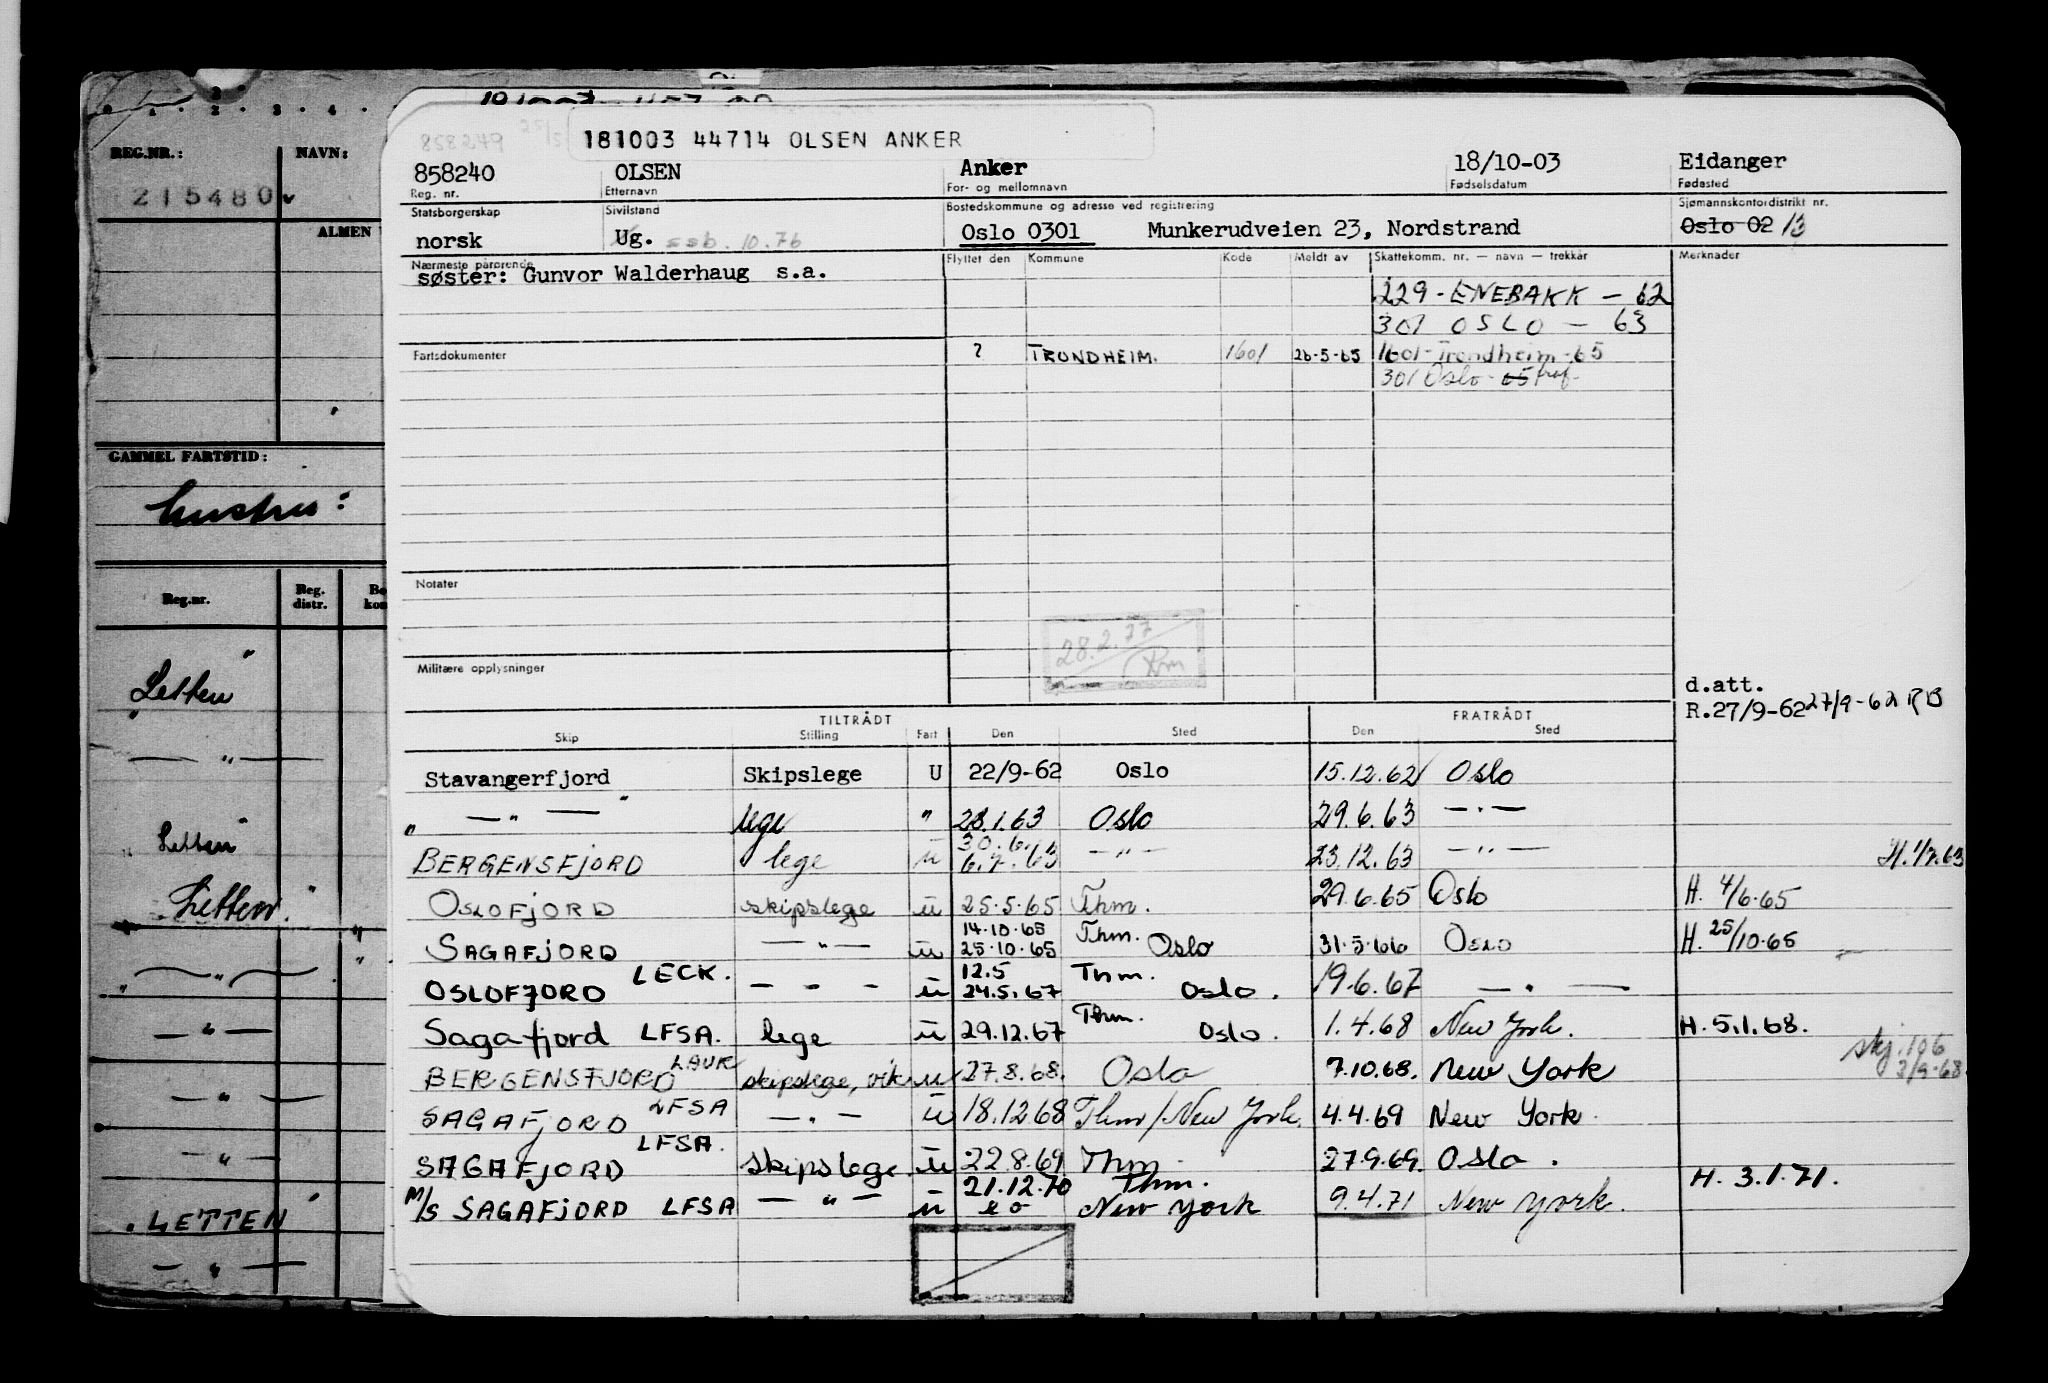 REG.NR.: NAVN:
215480
ALMEN
GAMMEL FARTSTID:
hustru:
Reg.nr. Reg. distr.
Letten "
— " —
Letten "
Letten "
— " —
— " —
— " —
— " —
LETTEN "
— " —
858249
181003 44714 OLSEN ANKER
858240 OLSEN Anker 18/10-03 Eidanger
Reg. nr. Etternavn For- og mellomnavn Fødselsdatum Fødested
Statsborgerskap Sivilstand Bostedskommune og adresse ved registrering Sjømannskontordistrikt nr.
norsk Ug. ssb. 10.76 Oslo 0301 Munkerudveien 23, Nordstrand Oslo 02 13
Nærmeste pårørende Flyttet den Kommune Kode Meldt av Skattekomm. nr. — navn — trekkår Merknader
søster: Gunvor Walderhaug s.a.
229 - ENEBAKK - 62
301 OSLO - 63
Fartsdokumenter ? TRONDHEIM. 1601 26-5-65 1601-Trondheim-65
301 Oslo - 65
Notater
28.2.77
Militære opplysninger
d.att.
R.27/9-62 27/9-62 RB
TILTRÅDT FRATRÅDT
Skip Stilling Fart Den Sted Den Sted
Stavangerfjord Skipslege U 22/9-62 Oslo 15.12.62 Oslo
" — " — " lege " 28.1.63 Oslo 29.6.63 — " —
30.6.
BERGENSFJORD lege u 6.7.63 — " — 23.12.63 — " — H. 1/7.63
OSLOFJORD skipslege u 25.5.65 Thm. 29.6.65 Oslo H. 4/6-65
14.10.65 Thm.
SAGAFJORD — " — u 25.10.65 Oslo 31.5.66 OSLO H. 25/10-65
LECK. 12.5 Thm.
OSLOFJORD — " — u 24.5.67 Oslo. 19.6.67 — " —
Thm.
Sagafjord LFSA. lege u 29.12.67 Oslo. 1.4.68 New York. H. 5.1.68.
BERGENSFJORD LAUK skipslege, vik u 27.8.68. Oslo 7.10.68. New York skj. 106
SAGAFJORD LFSA — " — u 18.12.68 Thm/New York. 4.4.69 New York.
SAGAFJORD LFSA. Skipslege. u 22.8.69 Thm. 27.9.69. Oslo.
21.12.70 Thm. H. 3.1.71.
M/S SAGAFJORD LFSA — " — u New York 9.4.71 New York.